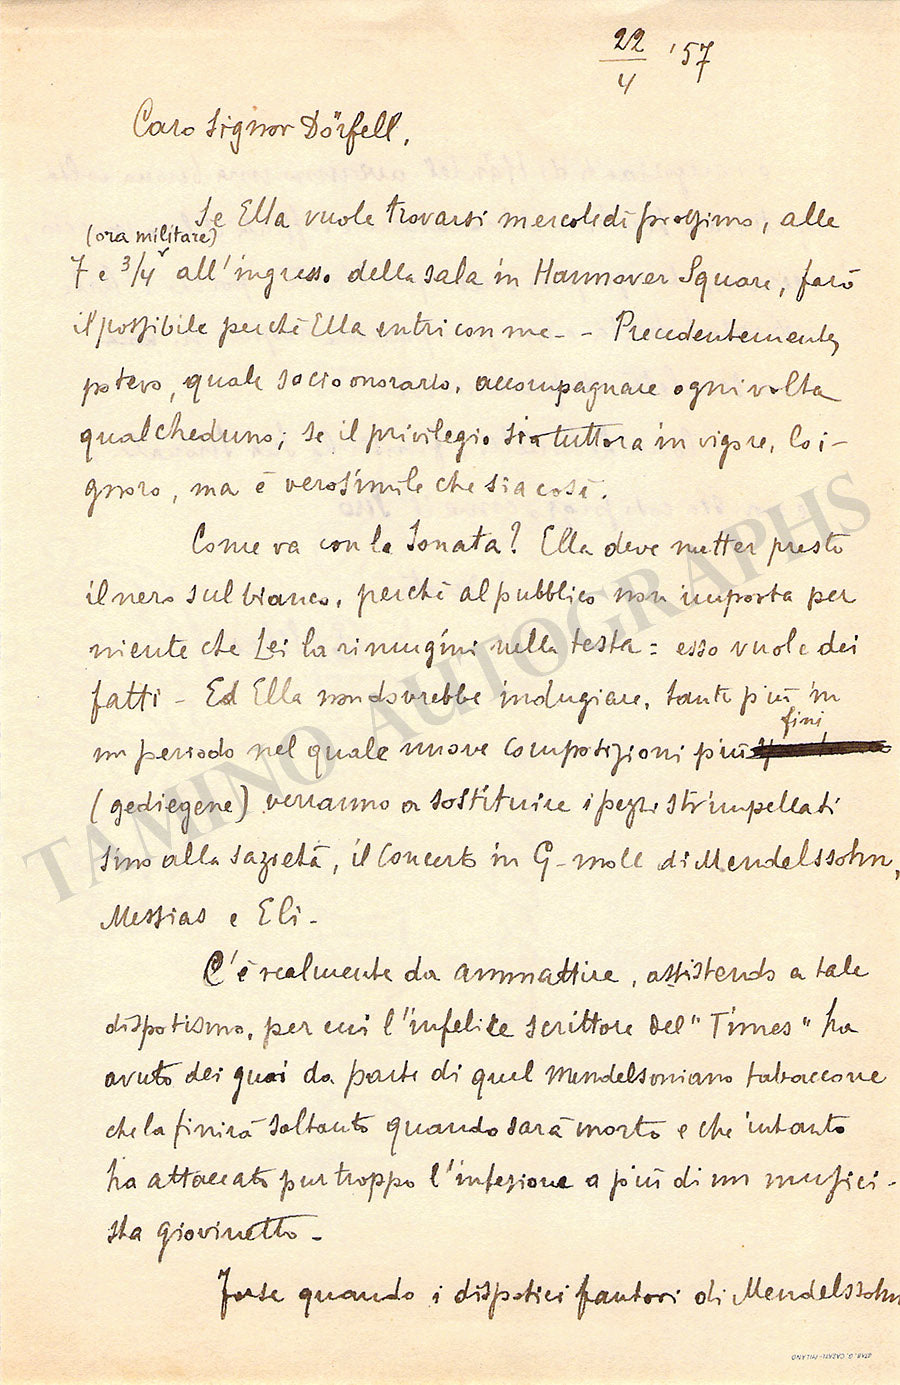 22/4 '57
Caro Signor Dörfell,
Se Ella vuole trovarsi mercoledì prossimo, alle
(ora militare)
7 e 3/4 all'ingresso della sala in Hannover Square, farò
il possibile perchè Ella entri con me - - Precedentemente,
potevo, quale socio onorario, accompagnare ogni volta
qualcheduno; se il privilegio sia tuttora in vigore, lo i-
gnoro, ma è verosimile che sia così.
Come va con la Sonata? Ella deve metter presto
il nero sul bianco, perchè al pubblico non importa per
niente che Lei la rimugini nella testa: esso vuole dei
fatti - Ed Ella non dovrebbe indugiare, tanto più in
fini
un periodo nel quale nuove composizioni più
(gediegene) verranno a sostituire i pezzi strimpellati
sino alla sazietà, il Concerto in G-moll di Mendelssohn,
Messias e Eli -
C'è realmente da ammattire, assistendo a tale
dispotismo, per cui l'infelice scrittore del "Times" ha
avuto dei guai da parte di quel mendelsoniano tabaccone
che la finirà soltanto quando sarà morto e che intanto
ha attaccato pur troppo l'infezione a più di un musici-
sta giovinetto -
Forse quando i dispotici fautori di Mendelssohn
TAMINO AUTOGRAPHS
STAB. G. CASATI - MILANO